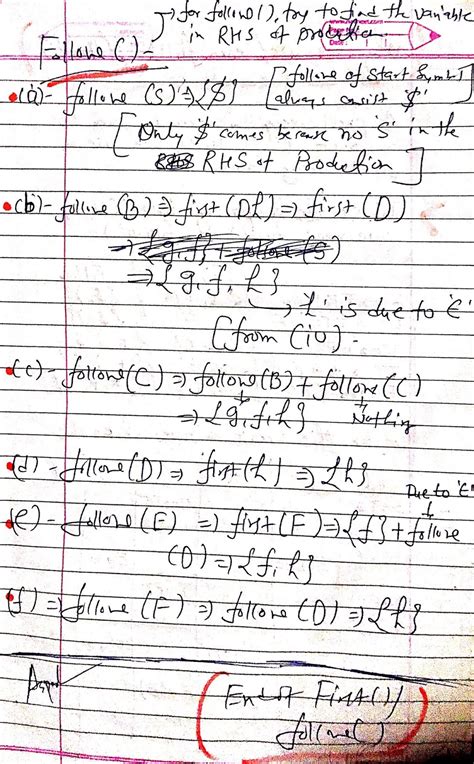 → for follow(), try to find the variable
in RHS of production
Follow() -
(a) - follow (S) ⇒ {$} [follow of Start Symbol
always consist '$']
[Only '$' comes because no 'S' in the
RHS of Production]
(b) - follow (B) ⇒ first (Dh) ⇒ first (D)
⇒ {g, f} + follow (S)
⇒ {g, f, h}
→ 'h' is due to 'ε'
[from (iv)].
(c) - follow (C) ⇒ follow (B) + follow (C)
⇒ {g, f, h} Nothing
(d) - follow (D) ⇒ first (h) ⇒ {h}
Due to 'ε'
(e) - follow (E) ⇒ first (F) ⇒ {f} + follow
(D) ⇒ {f, h}
(f) ⇒ follow (F) ⇒ follow (D) ⇒ {h}
End of First()/
follow()